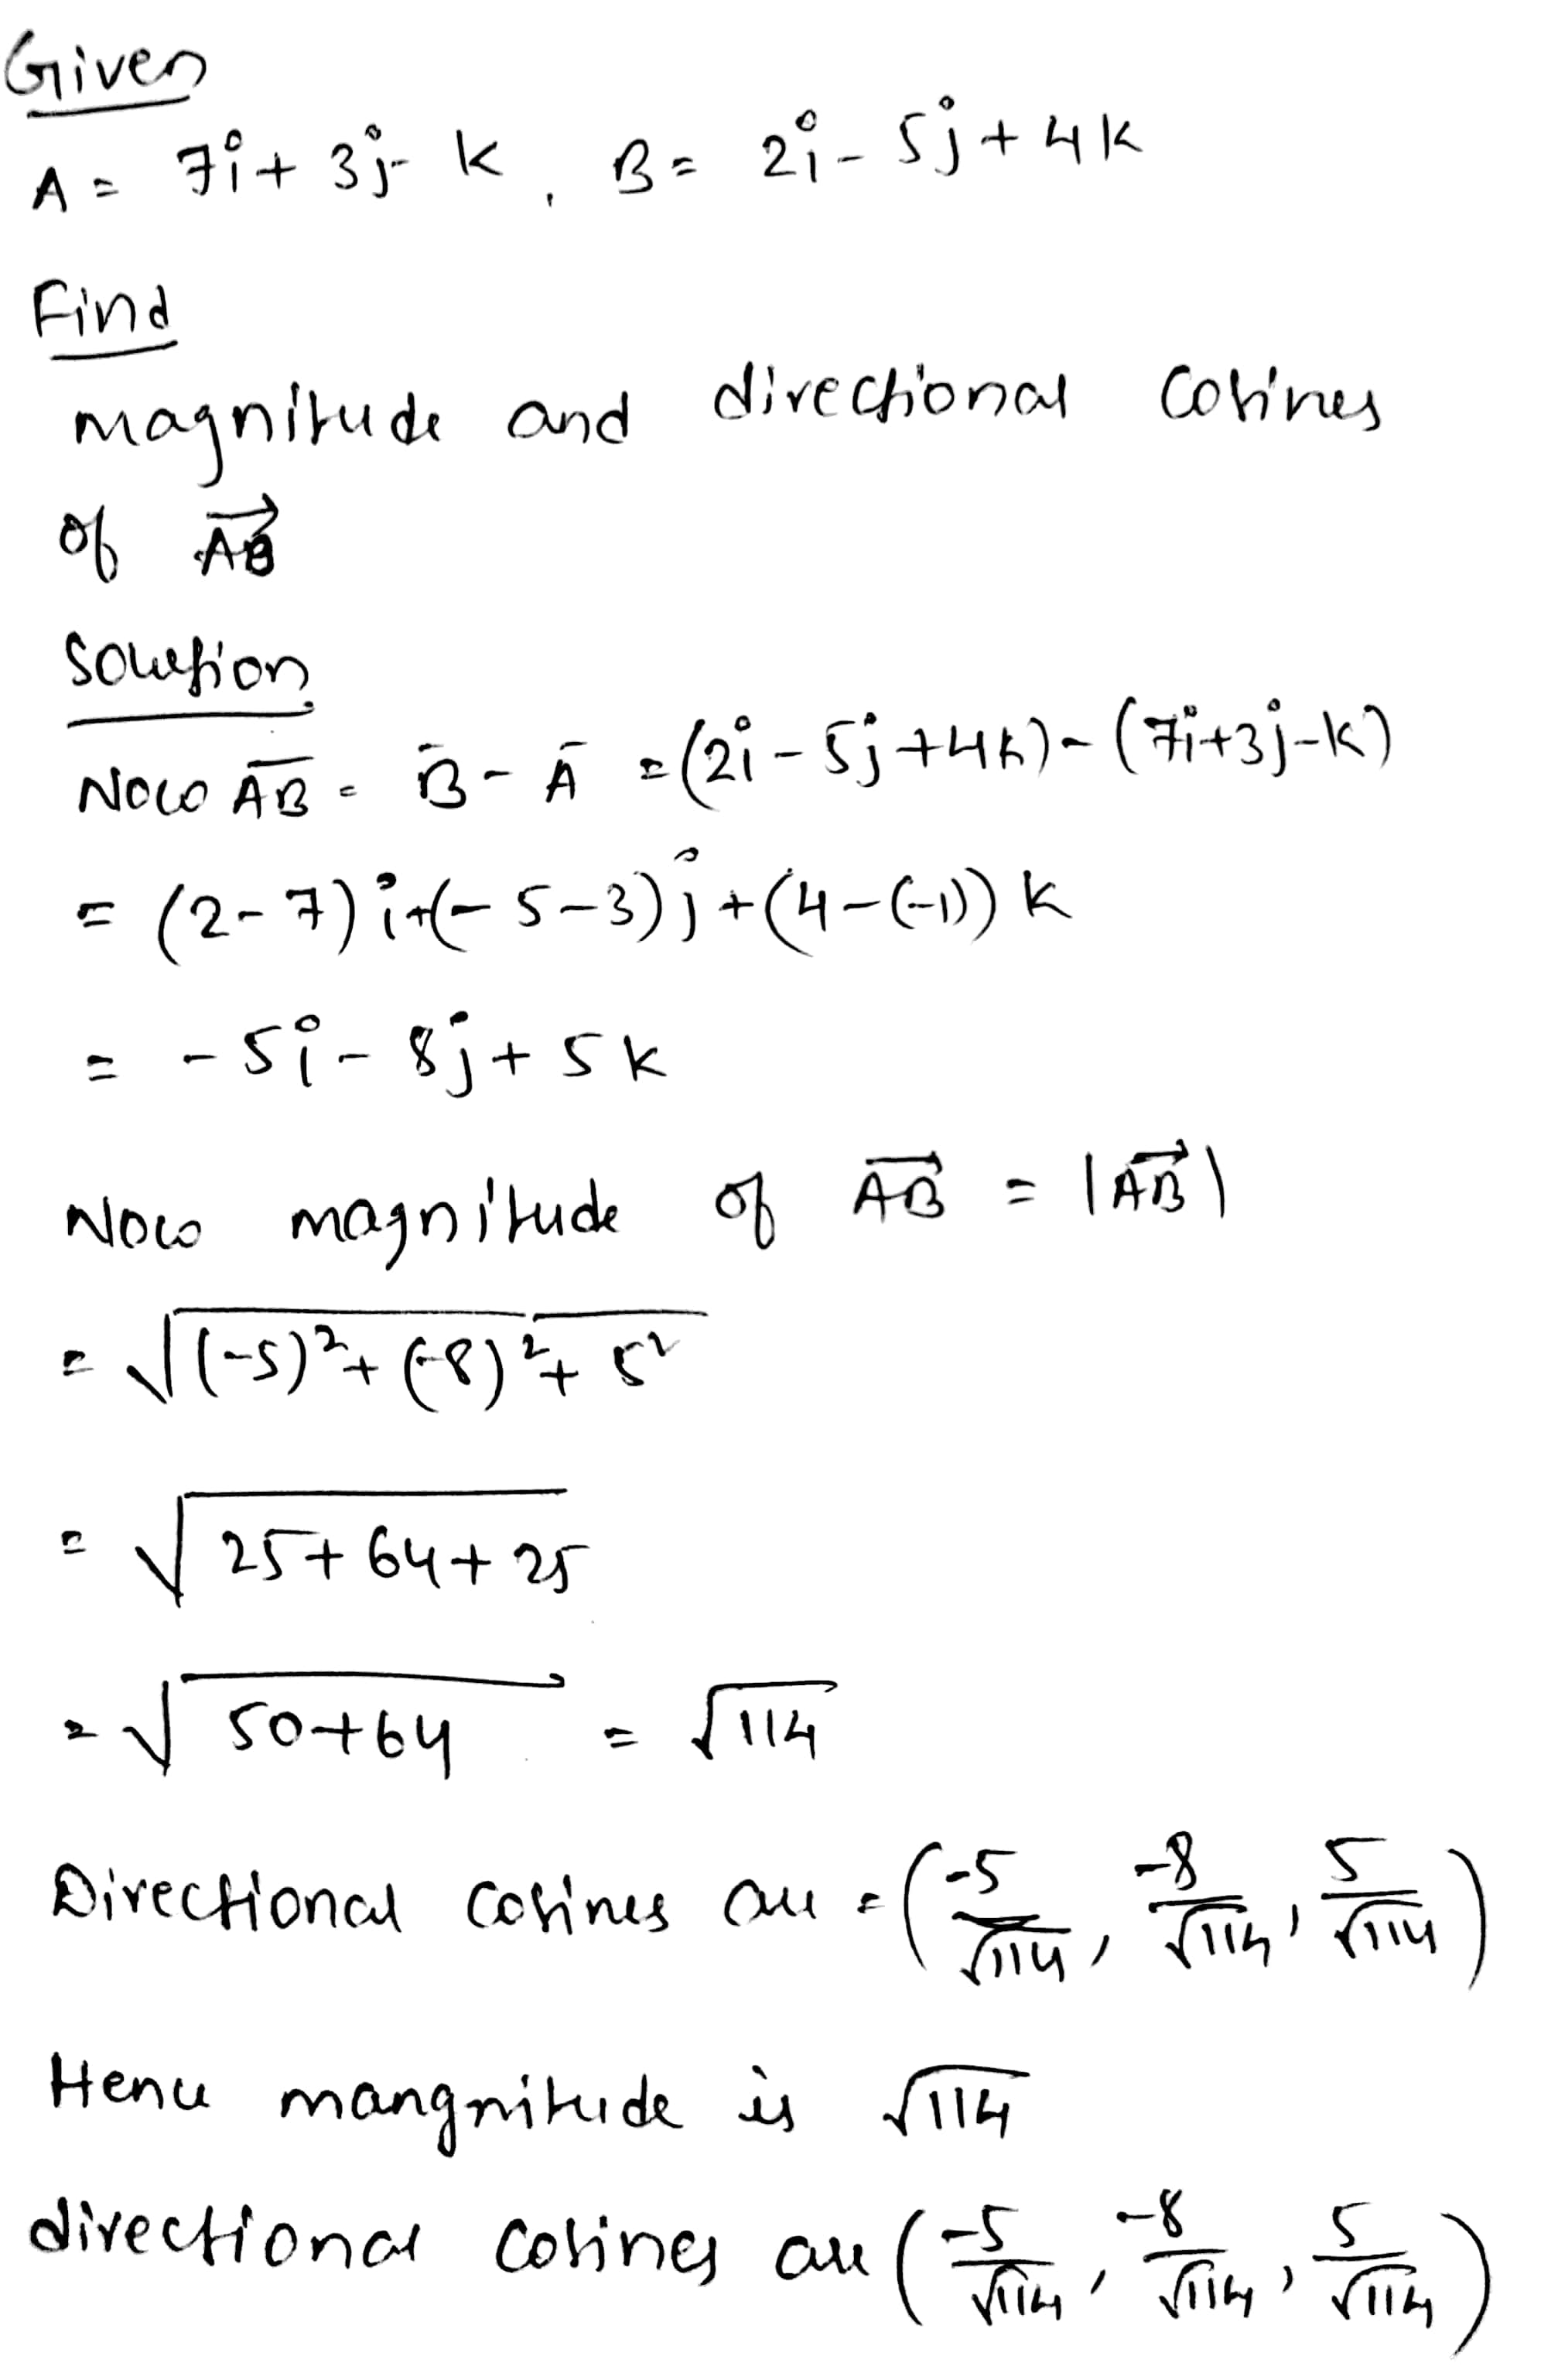 Given
A = 7i + 3j - k, B = 2i - 5j + 4k
Find
magnitude and directional cosines
of \overrightarrow{AB}
Solution
Now \overline{AB} = \bar{B} - \bar{A} = (2i - 5j + 4k) - (7i + 3j - k)
= (2-7)i + (-5-3)j + (4-(-1))k
= -5i - 8j + 5k
Now magnitude of \overrightarrow{AB} = |\overrightarrow{AB}|
= √((-5)² + (-8)² + 5²)
= √(25 + 64 + 25)
= √(50 + 64) = √114
Directional cosines are = (-5/√114, -8/√114, 5/√114)
Hence mangnitude is √114
directional cosines are (-5/√114, -8/√114, 5/√114)